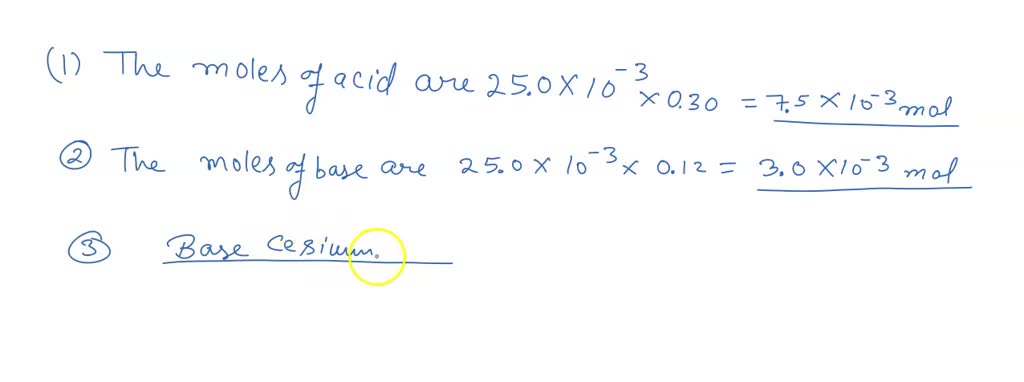 (1) The moles of acid are 25.0 × 10⁻³ × 0.30 = 7.5 × 10⁻³ mol
② The moles of base are 25.0 × 10⁻³ × 0.12 = 3.0 × 10⁻³ mol
③ Base Cesium.